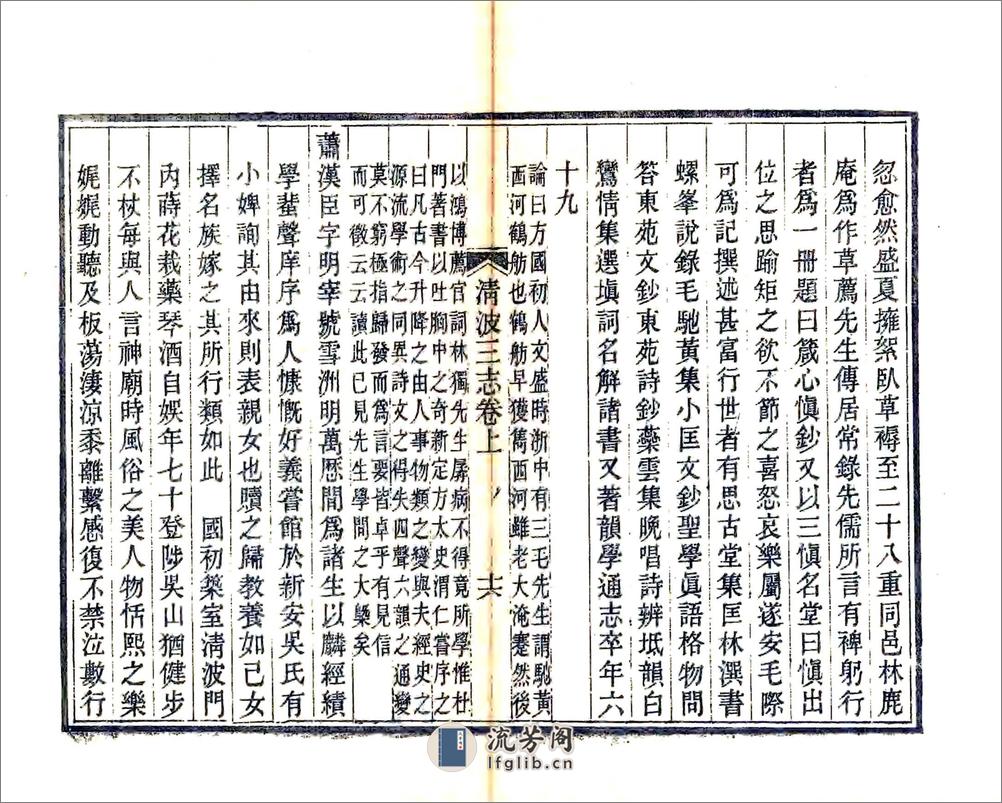 忽愈然盛夏擁絮臥草褥至二十八重同邑林鹿
庵爲作草薦先生傳居常錄先儒所言有裨躬行
者爲一冊題曰箴心愼鈔又以三愼名堂曰愼出
位之思踰矩之欲不節之喜怒哀樂屬遂安毛際
可爲記撰述甚富行世者有思古堂集匡林潠書
螺峯說錄毛馳黃集小匡文鈔聖學眞語格物問
答東苑文鈔東苑詩鈔蘂雲集晚唱詩辨坻韻白
鸞情集選塡詞名解諸書又著韻學通志卒年六
十九
論曰方國初人文盛時浙中有三毛先生謂馳黃
西河鶴舫也鶴舫早獲雋西河雖老大淹蹇然後
清波三志卷上
十六
以鴻博薦官詞林獨先生屏病不得竟所學惟杜
門著書以吐胸中之奇新定方太史渭仁嘗序之
曰凡古今升降之由人事物類之變與夫經史之
源流學術之同異詩文之得失四聲六韻之通變
莫不窮極指歸發而爲言要皆卓乎有見信
而可徵云云讀此已見先生學問之大槩矣
蕭漢臣字明宰號雪洲明萬歷間爲諸生以麟經績
學蜚聲庠序爲人慷慨好義嘗館於新安吳氏有
小婢詢其由來則表親女也贖之歸敎養如己女
擇名族嫁之其所行類如此 國初築室淸波門
內蒔花栽藥琴酒自娛年七十登陟吳山猶健步
不杖每與人言神廟時風俗之美人物恬熙之樂
娓娓動聽及板蕩淒涼黍離繫感復不禁泣數行
流芳阁
lfglib.cn